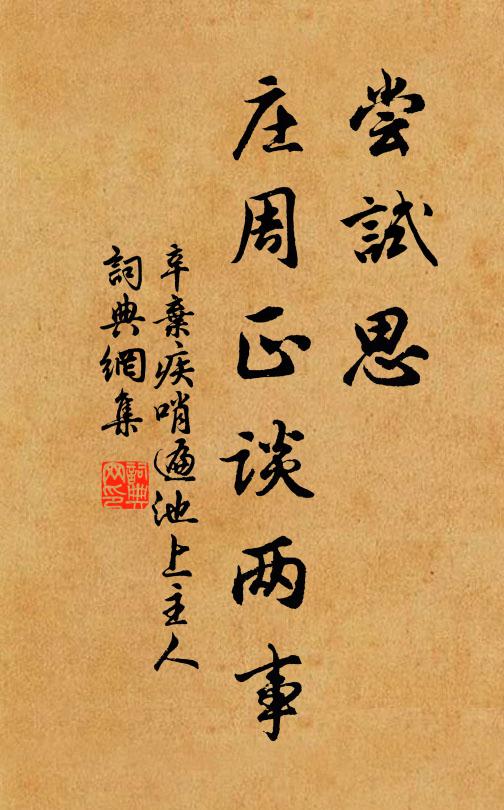 尝試思
庄周正谈两事
辛棄疾哨遍池上主人
詞典網集
詞典
网印